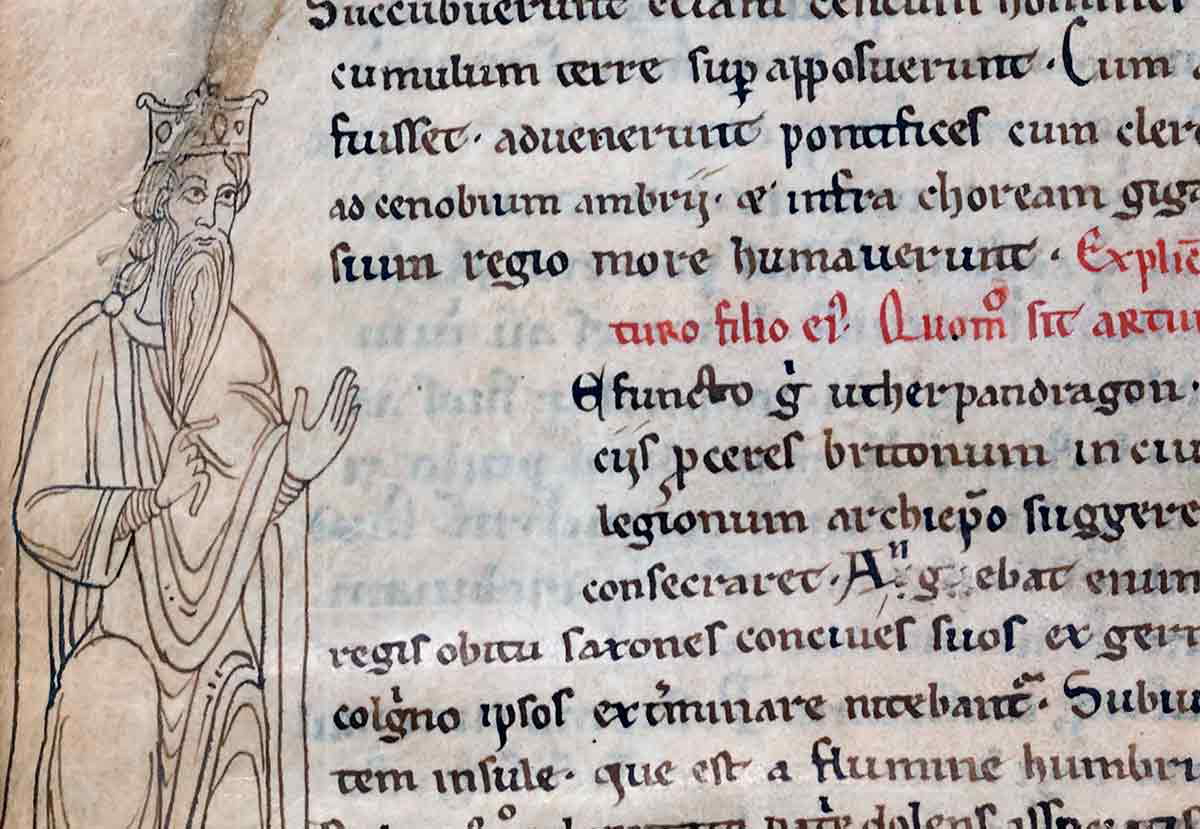 Succubuerunt etiam centum homines
cumulum terre sup̱ apposuerunt. Cum
fuisset. aduenerunt pontifices cum cler
ad cenobium ambrij. & infra choream giga
suum regio more humauerunt. Explic̄
turo filio ei᾽. Quom̊ sit artu
Efuncto gͥ utherpandragon.
cijs ꝓceres britonum in ciu
legionum archiep̄o suggere
consecraret. Angebat enim
regis obitu saxones conciues suos ex ger
colgͥno ipsos exͭminare nitebant᷑. Subiu
tem insule. que est a flumine humbri
dolens